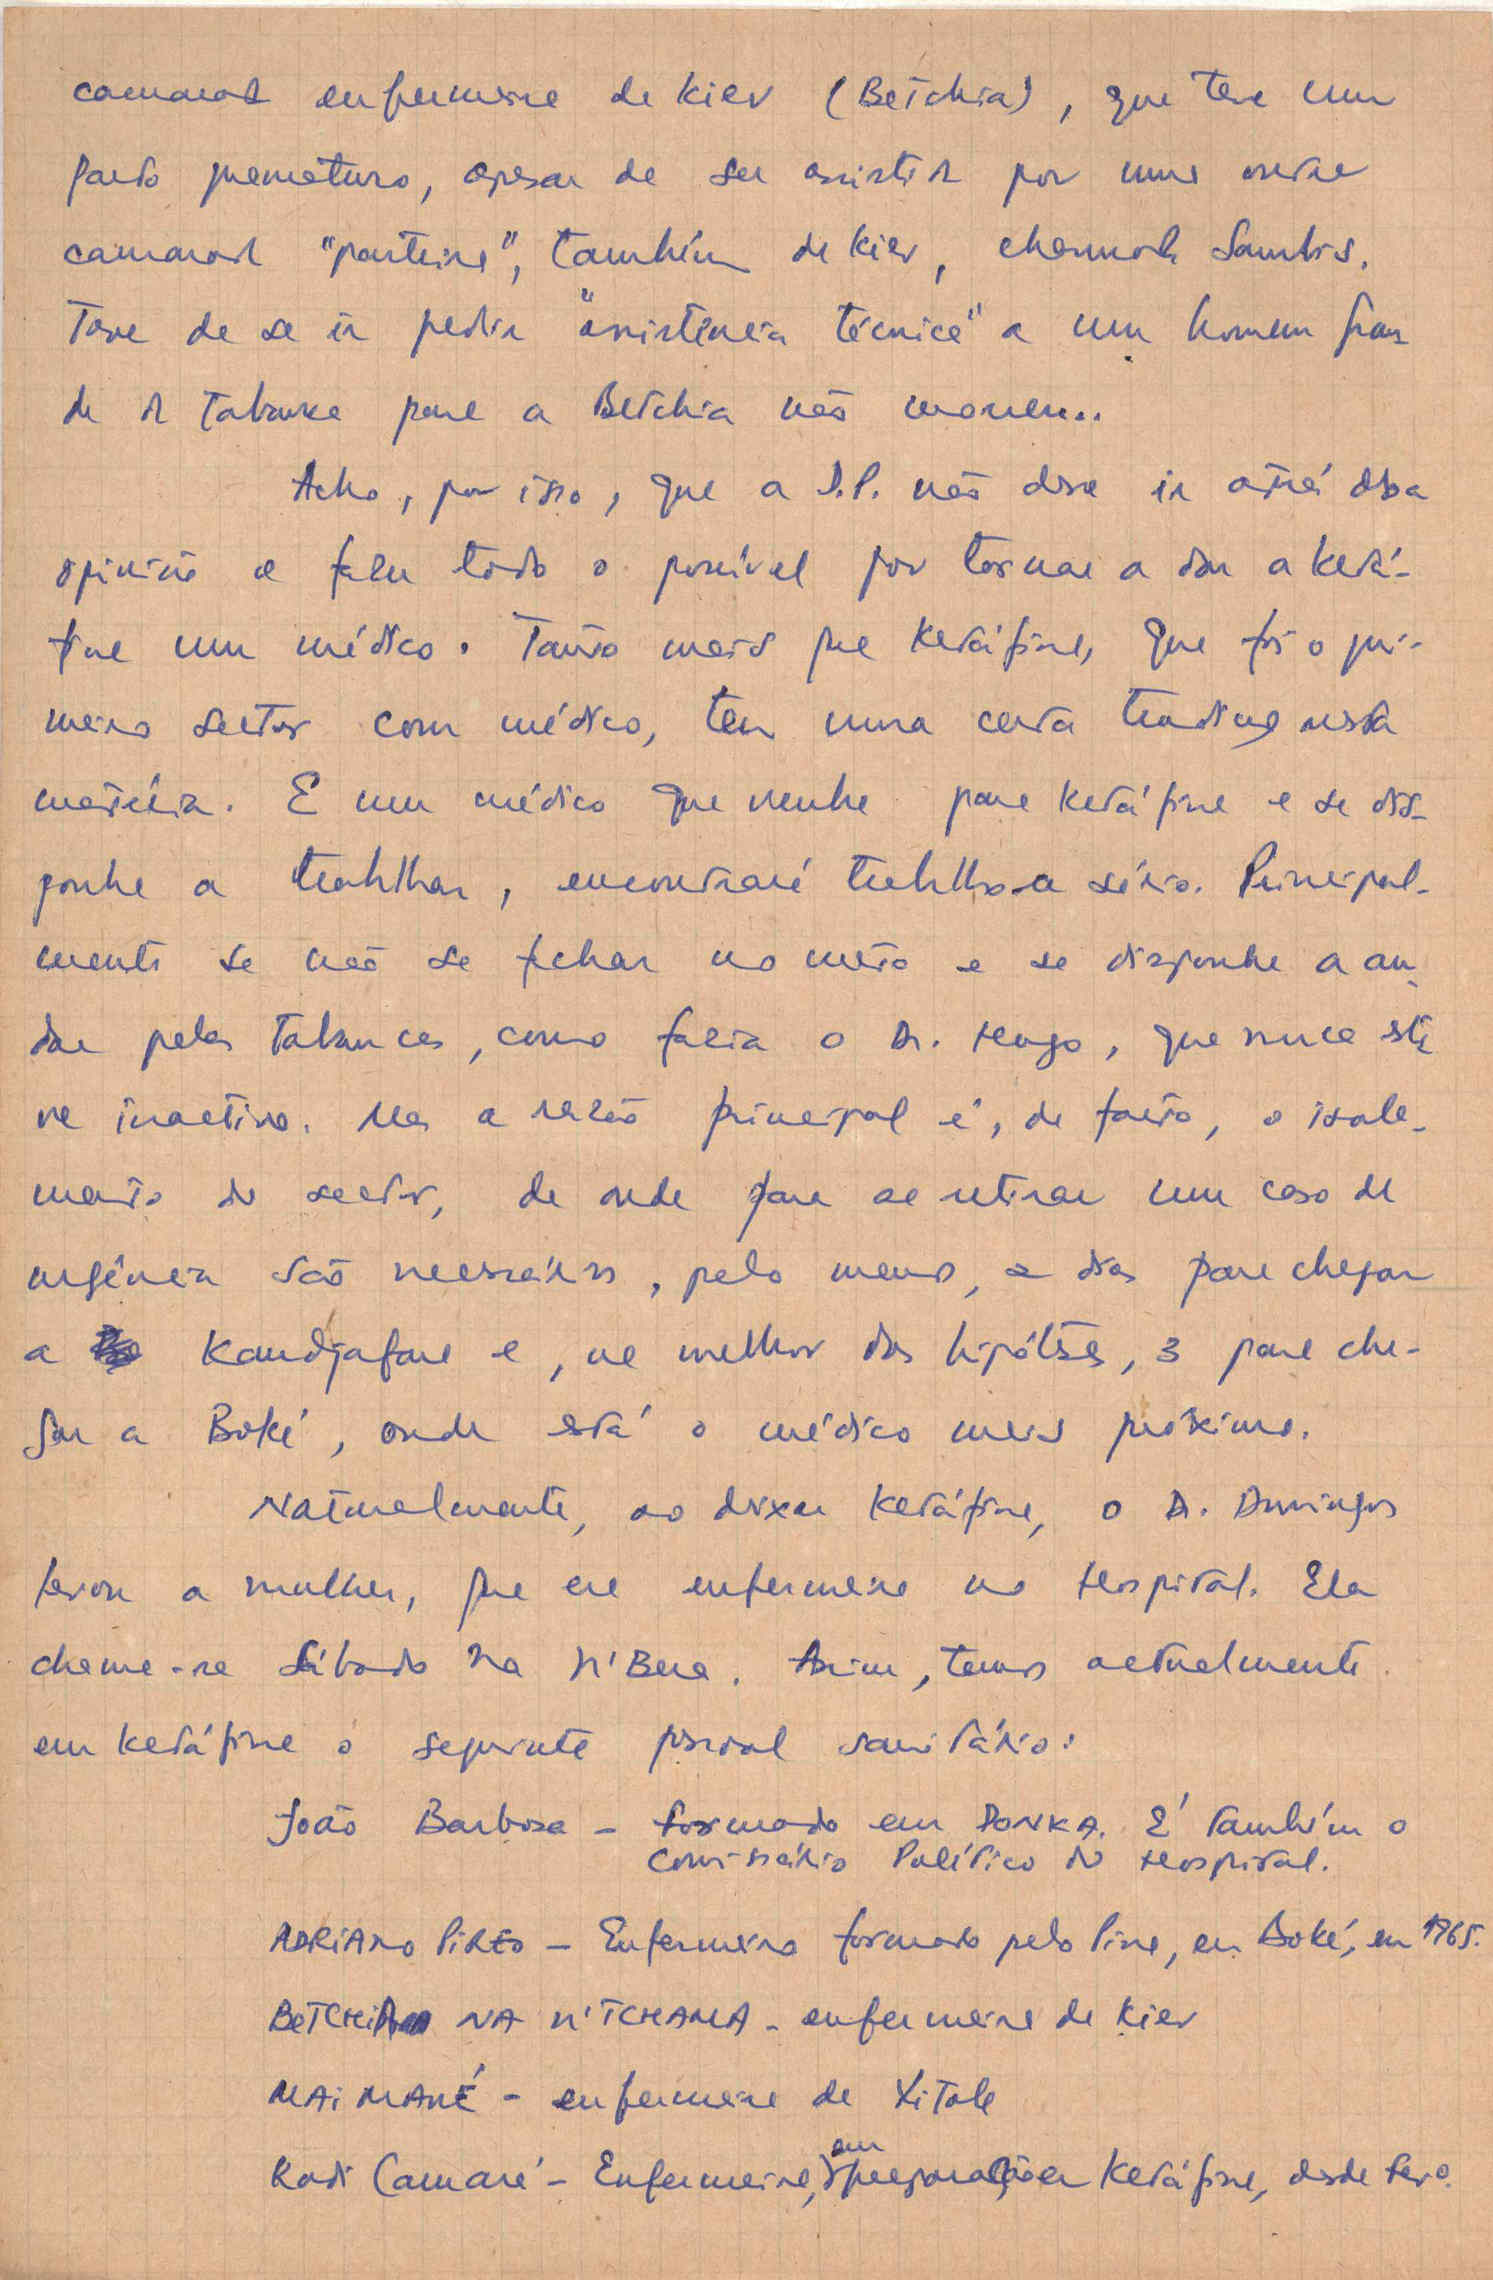 camarada enfermeira de Kiev (Betchia), que teve um
parto prematuro, apesar de ser assistida por uma outra
camarada "parteira", também de Kiev, chamada Sambis.
Teve de se ir pedir "assistência técnica" a um homem gran-
de da tabanca para a Betchia não morrer..
Acho, por isso, que a D.P. não deve ir atrás dessa
opinião e fazer todo o possível por tornar a dar a Ketá-
fine um médico. Tanto mais que Ketáfine, que foi o pri-
meiro sector com médico, tem uma certa tradição nesta
matéria. E um médico que venha para Ketáfine e se dis-
ponha a trabalhar, encontrará trabalho a sério. Principal-
mente se não se fechar no mato e se disponha a an-
dar pelas tabancas, como fazia o Dr. Hugo, que nunca este-
ve inactivo. Mas a razão principal é, de facto, o isola-
mento do sector, de onde para se retirar um caso de
urgência são necessários, pelo menos, 2 dias para chegar
a Kandjafara e, na melhor das hipóteses, 3 para che-
gar a Boké, onde está o médico mais próximo.
Naturalmente, ao deixar Ketáfine, o Dr. Domingos
levou a mulher, que era enfermeira no Hospital. Ela
chama-se Sábado Na N'Bera. Assim, temos actualmente
em Ketáfine o seguinte pessoal sanitário:
João Barbosa - formado em DONKA. É também o
Comissário Político do Hospital.
ADRIANO PIRES - Enfermeiro formado pelo Pina, em Boké, em 1965.
BETCHIA NA N'TCHAMA - enfermeira de Kiev
MAI MANÉ - enfermeira de Xitole
Kadi Camará - Enfermeira, em preparação em Ketáfine, desde Fevº.